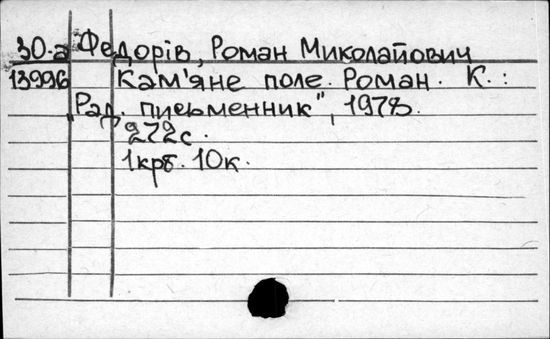 30-а Федорів, Роман Миколайович
13996 Кам'яне поле. Роман. К.:
"Рад. письменник", 1978.
272с.
1крб. 10к.